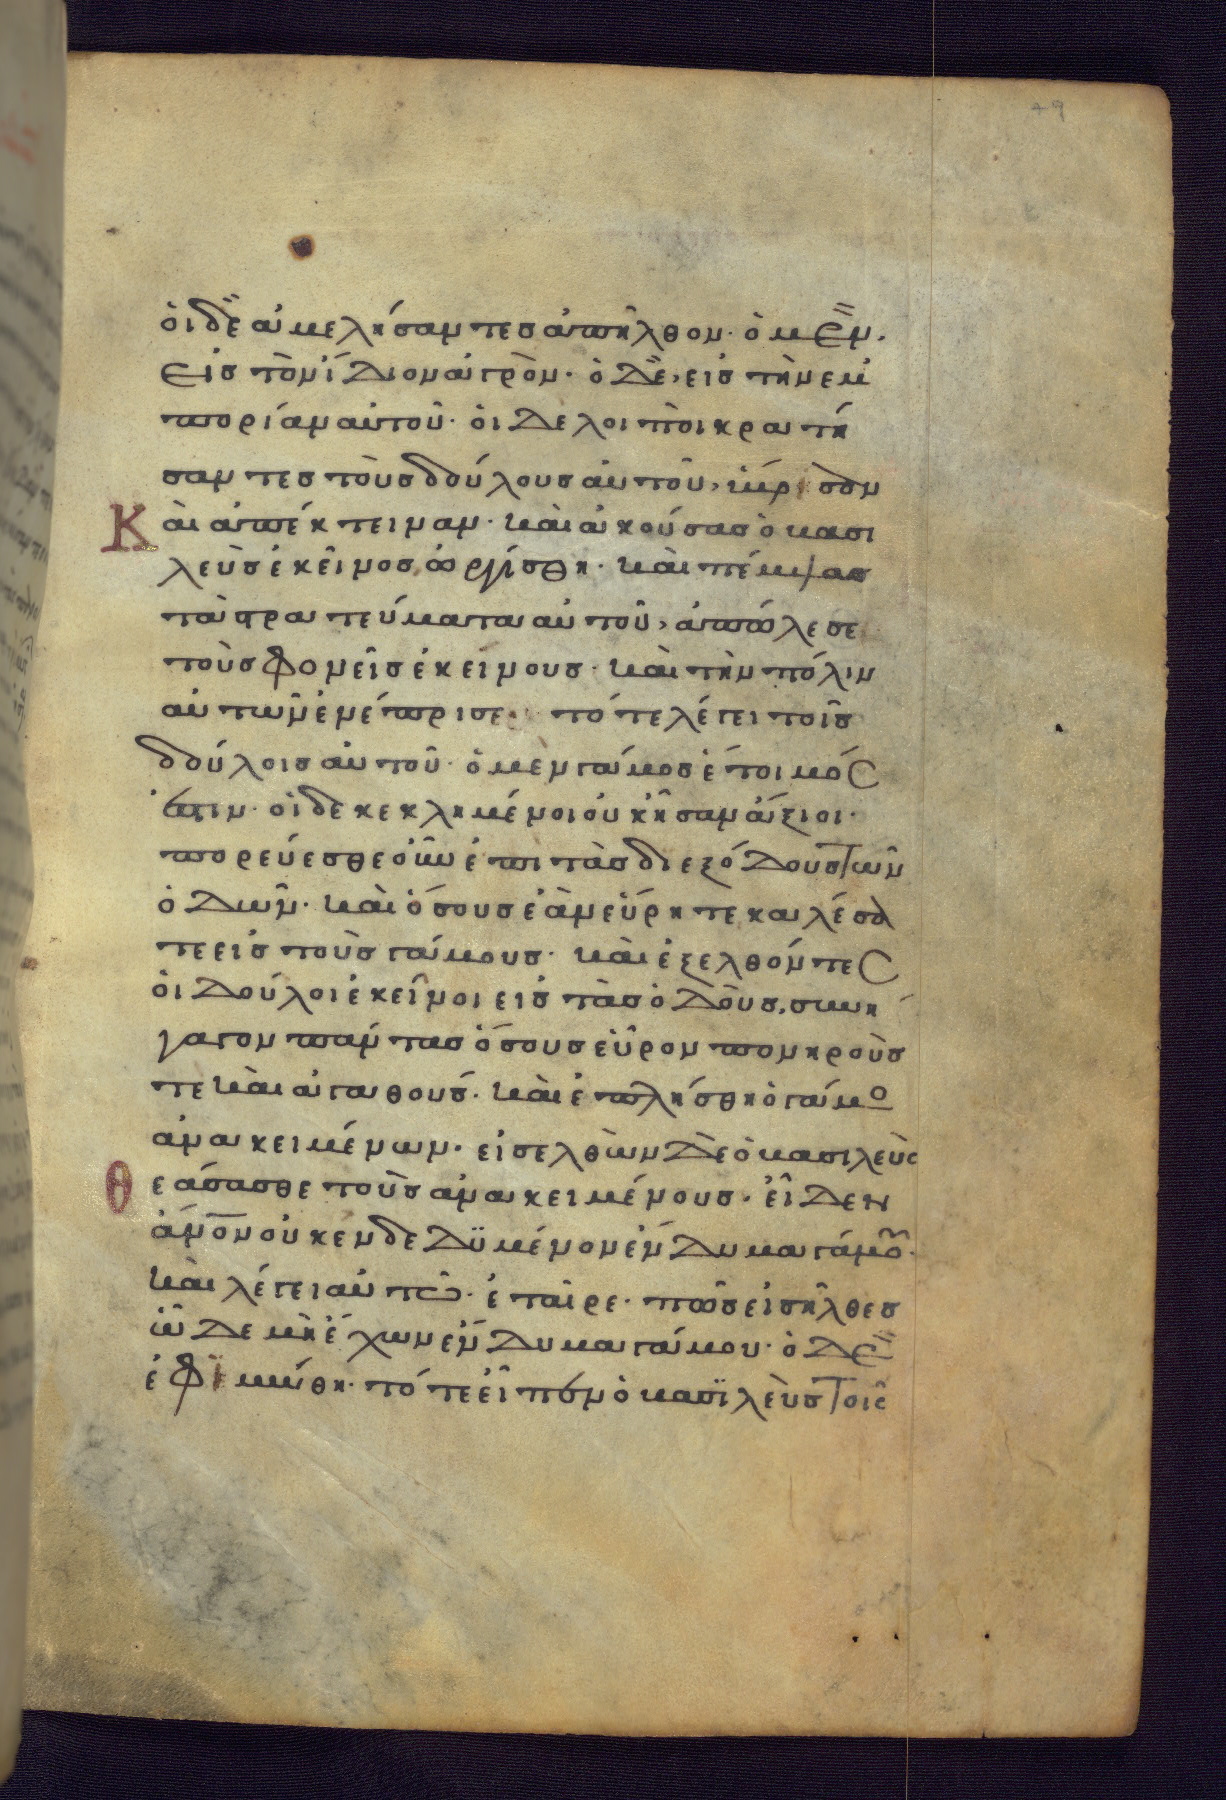 49
ὁι δὲ ἀμελήσαντες ἀπῆλθον· ὁ μὲν.
εἰς τὸν ἴδιον ἀγρὸν· ὁ δὲ, εἰς τὴν ἐμ
πορίαν αὐτοῦ· ὁι δε λοιποὶ κρατή
σαντες τοὺς δούλους αὐτοῦ, ὕβρισὸν
Κὰι ἀπέκτειναν· κὰι ἀκούσας ὁ βασι
λεὺς ἐκεῖνος ὠργίσθη· κὰι πέμψας
τὰ στρατεύματα αὐτοῦ, ἀπώλεσε
τοὺς φονεῖς ἐκείνους· κὰι τὴν πόλιν
αὐτῶν ἐνέπρισε· τότε λέγει τοῖς
δούλοις αὐτοῦ· ὁ μὲν γάμος ἕτοιμός
ἐστιν· οἱ δε κεκλημένοι οὐκ ἦσαν ἄξιοι·
πορεύεσθε οὖν ἐπι τὰς διεξόδους τῶν
ὁδῶν· κὰι ὅσους ἐὰν εὕρητε καλέσα
τε εἰς τοὺς γάμους· κὰι ἐξελθόντες
ὁι δούλοι ἐκεῖνοι εἰς τὰς ὁδοὺς, συνή
γαγον πάντας ὅσους εὗρον πονηροὺς
τε κὰι ἀγαθούς· κὰι ἐπλήσθη ὁ γάμο
ἀνακειμένων· εἰσελθὼν δὲ ὁ βασιλεὺς
Θεάσασθε τοὺς ἀνακειμένους· εἶδεν
ἄνον οὐκ ενδεδϋμένον ἔνδυμα γάμου·
κὰι λέγει αὐτῶ· ἑταῖρε· πῶς εἰσῆλθες
ὧδε μὴ ἔχων ἔνδυμα γάμου· ὁ δὲ
ἐφϊμώθη· τότε εἶπὸν ὁ βασϊλὲυς τοῖς